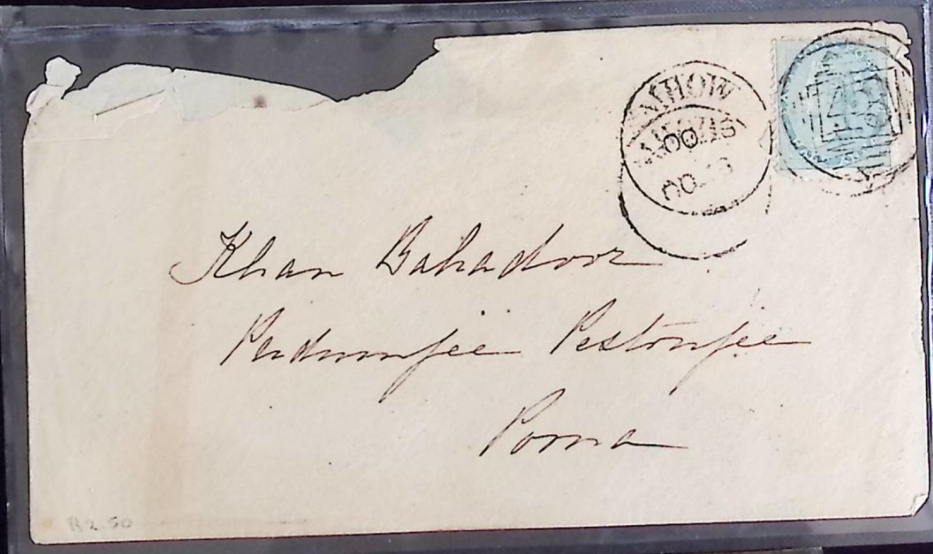 MHOW
OC
45
Khan Bahadoor
Pudumjee Pestonjee
Poona
R2.50